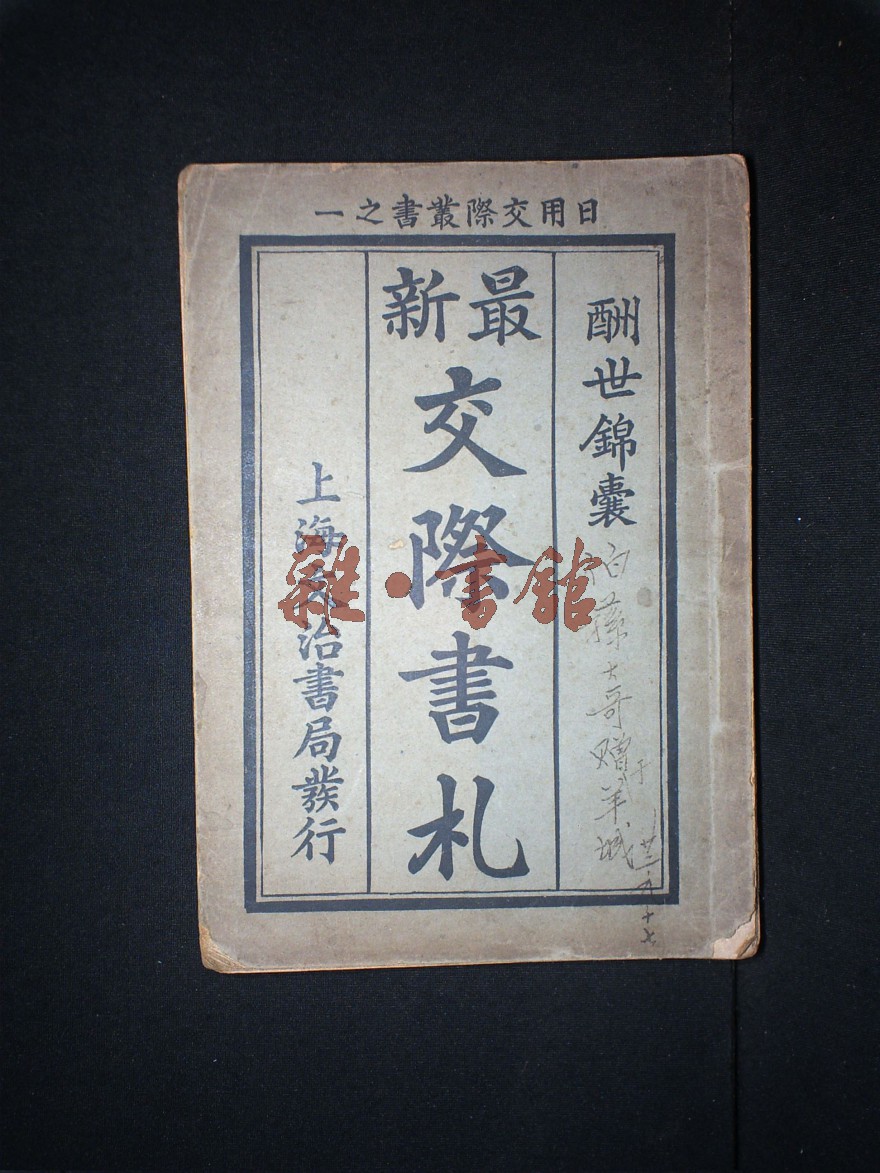 日用交際叢書之一
酬世錦囊
最新
交際書札
上海文治書局發行
大哥贈
于羊城
廿三、五、十七
雜·書館